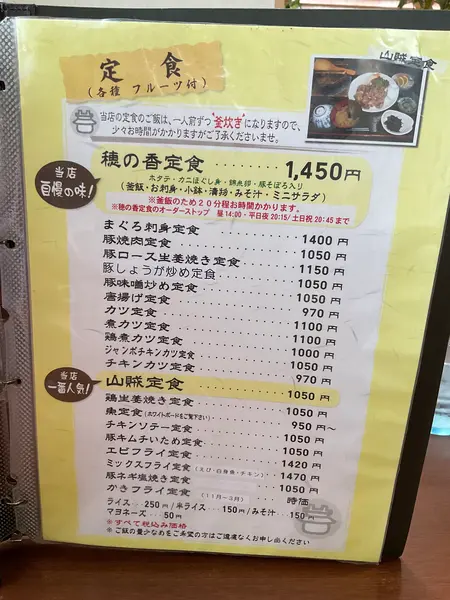 定食
(各種 フルーツ付)
山賊定食
当店の定食のご飯は、一人前ずつ"釜炊き"になりますので、
少々お時間がかかりますがご了承くださいませ。
当店
自慢の味!
穂の香定食 ・・・・・・ 1,450円
ホタテ・カニほぐし身・錦糸卵・豚そぼろ入り
(釜飯・お刺身・小鉢・漬物・みそ汁・ミニサラダ)
※釜飯のため20分程お時間かかります。
※穂の香定食のオーダーストップ 昼14:00・平日夜20:15/土日祝20:45まで
まぐろ刺身定食 ・・・・・・ 1400円
豚焼肉定食 ・・・・・・ 1050円
豚ロース生姜焼き定食 ・・・・・・ 1150円
豚しょうが炒め定食 ・・・・・・ 1050円
豚味噌炒め定食 ・・・・・・ 1050円
唐揚げ定食 ・・・・・・ 970円
カツ定食 ・・・・・・ 1100円
煮カツ定食 ・・・・・・ 1100円
鶏煮カツ定食 ・・・・・・ 1000円
ジャンボチキンカツ定食 ・・・・・・ 1050円
チキンカツ定食 ・・・・・・ 970円
当店
一番人気!
山賊定食 ・・・・・・ 1050円
鶏生姜焼き定食 ・・・・・・ 1050円
魚定食(ホワイトボードをご覧下さい) ・・・・・・ 950円～
チキンソテー定食 ・・・・・・ 1050円
豚キムチいため定食 ・・・・・・ 1050円
エビフライ定食 ・・・・・・ 1420円
ミックスフライ定食(えび・白身魚・チキン) ・・ 1470円
豚ネギ塩焼き定食 ・・・・・・ 1050円
かきフライ定食 (11月～3月) 時価
ライス・・・250円/半ライス・・・150円/みそ汁・・・150円
マヨネーズ・・・50円
※すべて税込み価格
※ご飯の量少なめをご希望の方はご遠慮なくお申し出ください